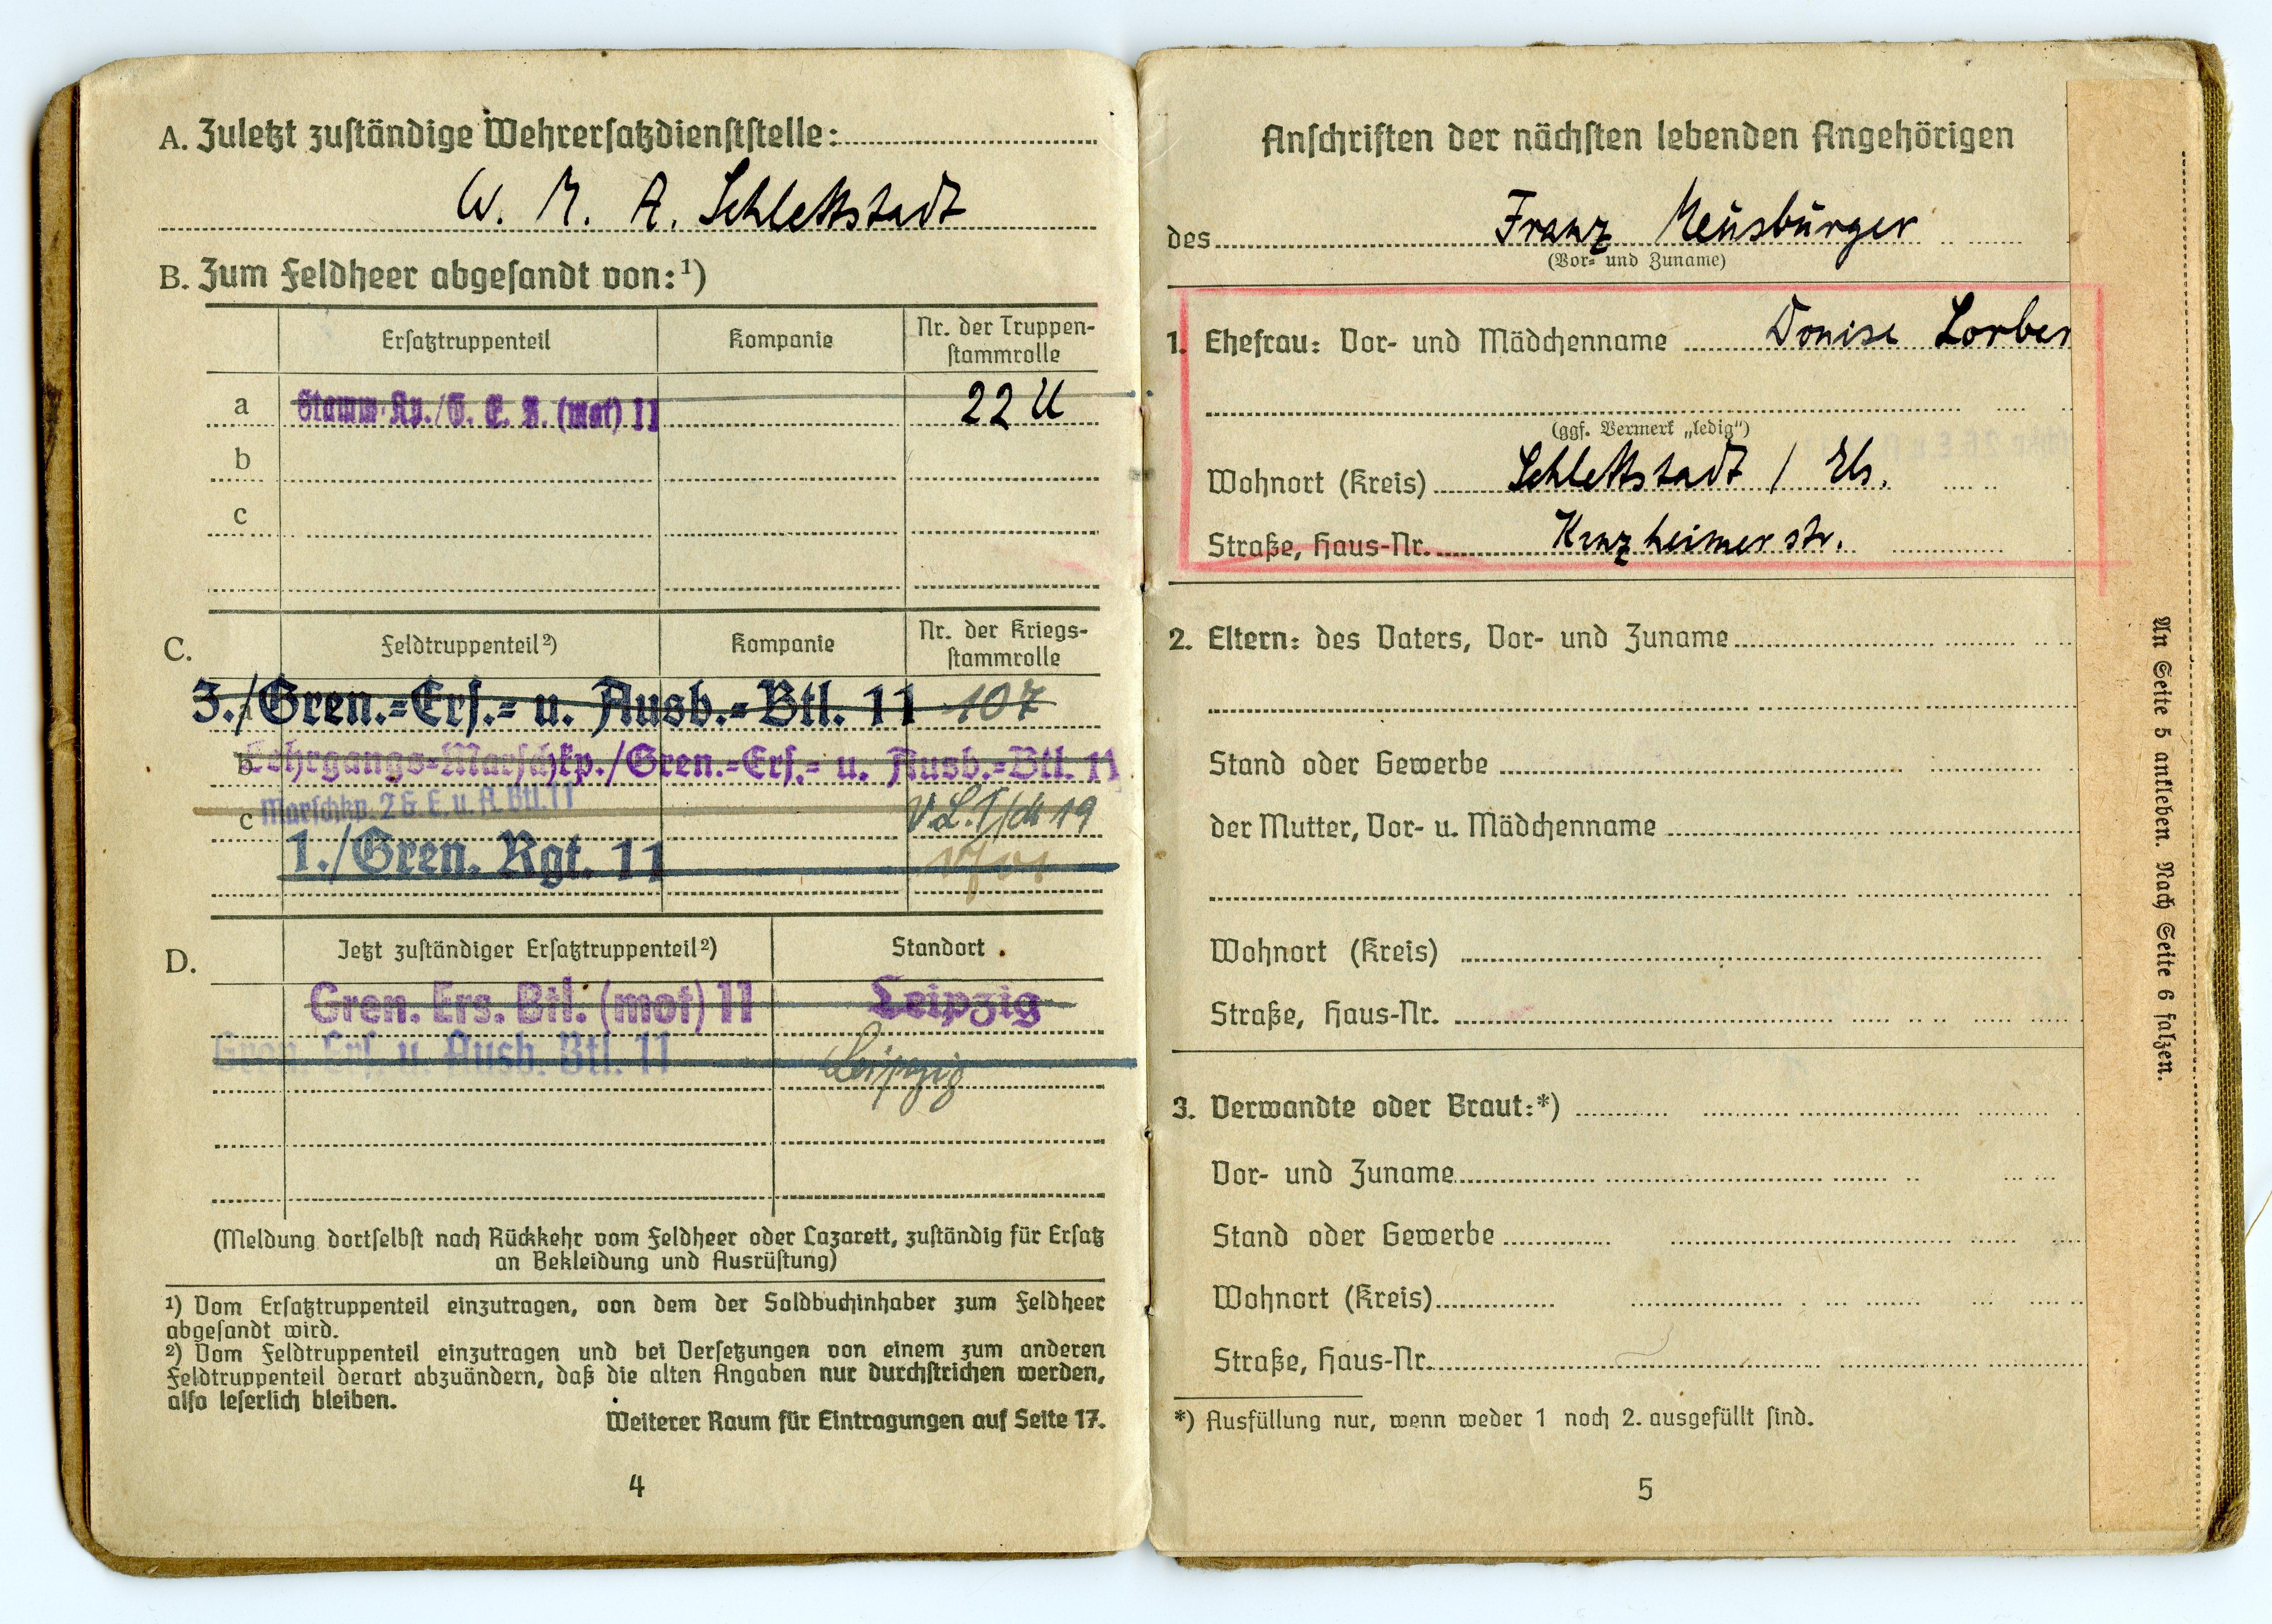 A. Zuletzt zuständige Wehrersatzdienststelle:
W. M. A. Schlettstadt
B. Zum Feldheer abgesandt von:¹)
Ersatztruppenteil Kompanie Nr. der Truppen-
stammrolle
a Stamm-Kp./G. E. B. (mot) 11 22 U
b
c
C. Feldtruppenteil²) Kompanie Nr. der Kriegs-
stammrolle
a 3./Gren.-Ers.- u. Ausb.-Btl. 11 107
b Lehrgangs-Marschkp./Gren.-Ers.- u. Ausb.-Btl. 11
c Marschkp. 2 G. E. u. A. Btl. 11 19
1./Gren. Rgt. 11
D. Jetzt zuständiger Ersatztruppenteil²) Standort
Gren. Ers. Btl. (mot) 11 Leipzig
Gren. Ers. u. Ausb. Btl. 11 Leipzig
(Meldung dortselbst nach Rückkehr vom Feldheer oder Lazarett, zuständig für Ersatz
an Bekleidung und Ausrüstung)
¹) Vom Ersatztruppenteil einzutragen, von dem der Soldbuchinhaber zum Feldheer
abgesandt wird.
²) Vom Feldtruppenteil einzutragen und bei Versetzungen von einem zum anderen
Feldtruppenteil derart abzuändern, daß die alten Angaben nur durchstrichen werden,
also leserlich bleiben.
Weiterer Raum für Eintragungen auf Seite 17.
4
Anschriften der nächsten lebenden Angehörigen
des Franz Meusburger
(Vor- und Zuname)
1. Ehefrau: Vor- und Mädchenname Lorber
(ggf. Vermerk „ledig“)
Wohnort (Kreis) Schlettstadt / Els.
Straße, Haus-Nr. Kinzheimerstr.
2. Eltern: des Vaters, Vor- und Zuname
Stand oder Gewerbe
der Mutter, Vor- u. Mädchenname
Wohnort (Kreis)
Straße, Haus-Nr.
3. Verwandte oder Braut:*)
Vor- und Zuname
Stand oder Gewerbe
Wohnort (Kreis)
Straße, Haus-Nr.
*) Ausfüllung nur, wenn weder 1 noch 2. ausgefüllt sind.
5
An Seite 5 ankleben. Nach Seite 6 falzen.